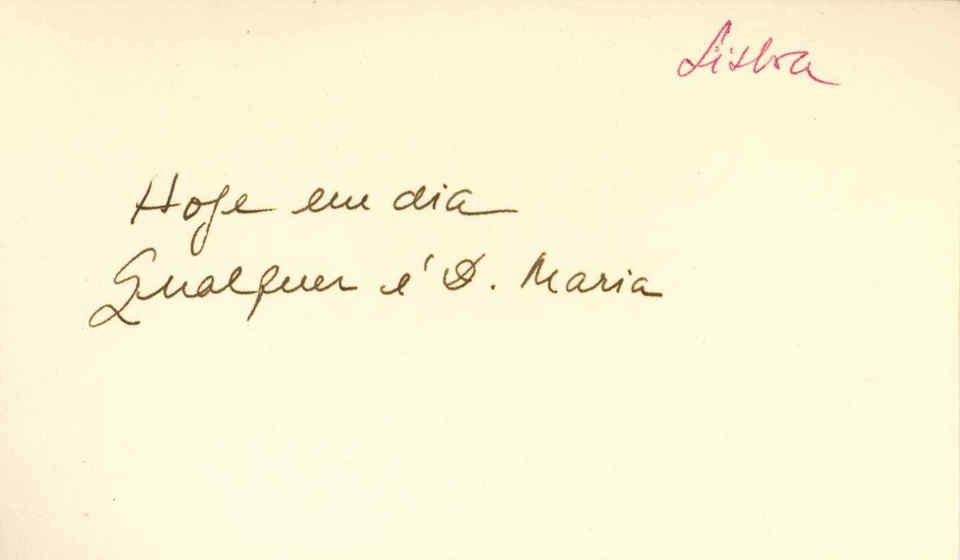 Lisboa
Hoje em dia
Qualquer é D. Maria